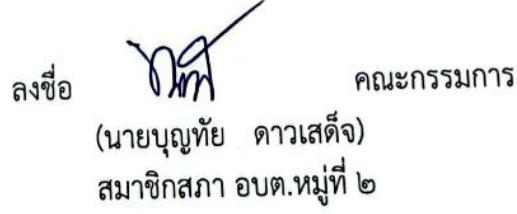 ลงชื่อ คณะกรรมการ
(นายบุญทัย ดาวเสด็จ)
สมาชิกสภา อบต.หมู่ที่ ๒